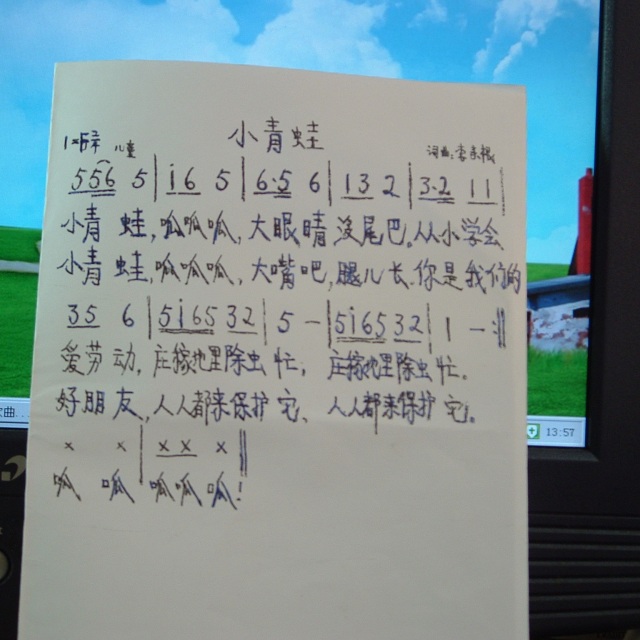 小青蛙
儿童 词曲:
556 5 | i6 5 | 6·5 6 | 13 2 | 3·2 11 |
小青 蛙,呱呱呱,大眼睛,没尾巴。从小学会
小青 蛙,呱呱呱,大嘴吧,腿儿长.你是我们的
35 6 | 5i65 32 | 5 — | 5i65 32 | 1 — :‖
爱劳动,庄稼地里除虫忙,庄稼地里除虫忙。
好朋友,人人都来保护它、人人都来保护它。
x x | xx x ‖
呱 呱 呱呱 呱!
13:57